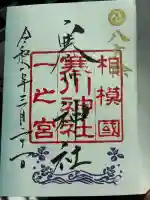 八方除
相模國
寒川神社
一之宮
寒川神社
令和二年三月二十一日